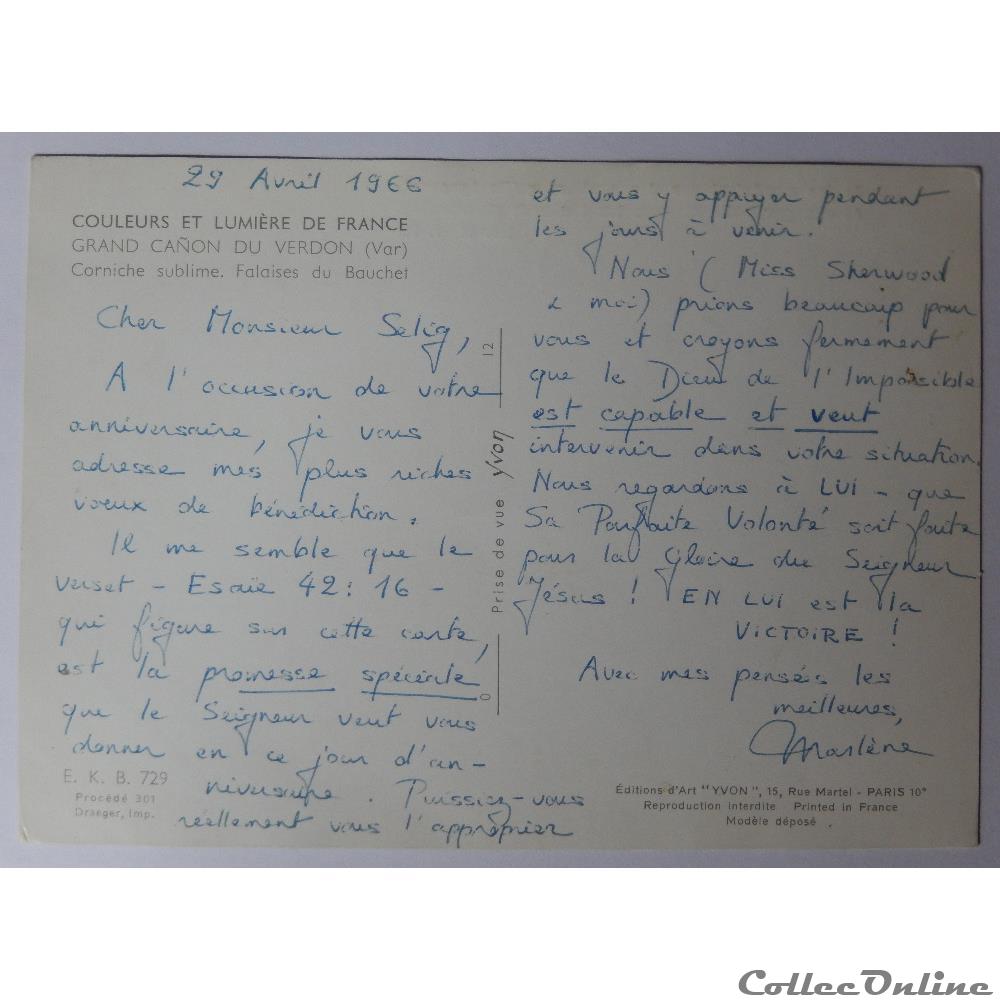 29 Avril 1966
COULEURS ET LUMIÈRE DE FRANCE
GRAND CAÑON DU VERDON (Var)
Corniche sublime. Falaises du Bauchet
Cher Monsieur Selig,
A l'occasion de votre
anniversaire, je vous
adresse mes plus riches
voeux de bénédiction.
Il me semble que le
verset - Esaïe 42:16 -
qui figure sur cette carte,
est la promesse spéciale
que le Seigneur veut vous
donner en ce jour d'an-
niversaire. Puissiez-vous
réellement vous l'approprier
E. K. B. 729
Procédé 301
Draeger, Imp.
0 Prise de vue Yvon 12
et vous y appuyer pendant
les jours à venir.
Nous (Miss Sherwood
& moi) prions beaucoup pour
vous et croyons fermement
que le Dieu de l'Impossible
est capable et veut
intervenir dans votre situation.
Nous regardons à LUI - que
Sa Parfaite Volonté soit faite
pour la Gloire du Seigneur
Jésus ! EN LUI est la
VICTOIRE !
Avec mes pensées les
meilleures,
Marlène
Éditions d'Art "YVON", 15, Rue Martel - PARIS 10ᵉ
Reproduction interdite Printed in France
Modèle déposé
CollecOnline